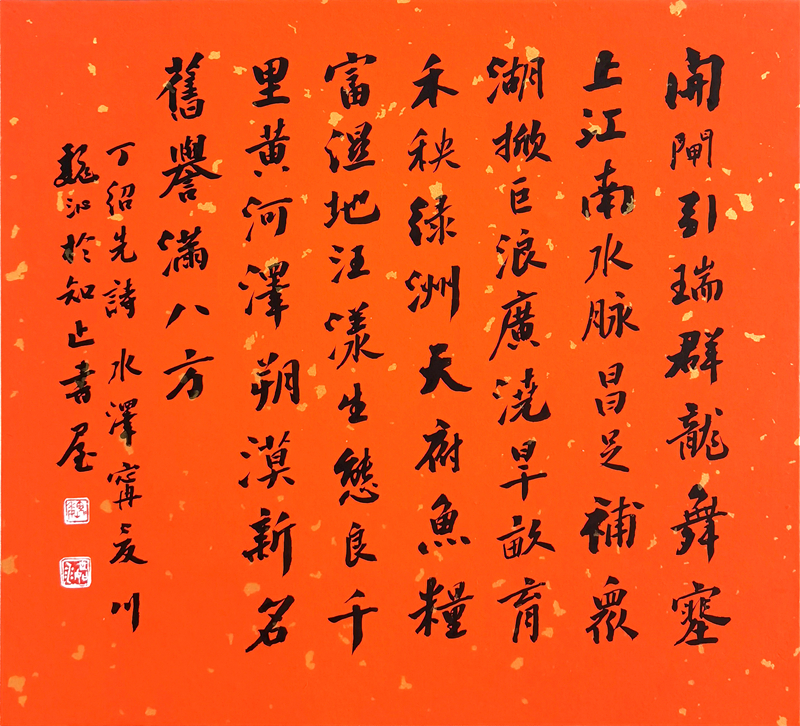 開閘引瑞群龍舞塞
上江南水脉昌足補衆
湖掀巨浪廣澆旱畝育
禾秧绿洲天府魚糧
富濕地汪漾生態良千
里黄河澤朔漠新名
舊譽滿八方
丁紹先詩水澤寧夏川
魏沁於知止書屋